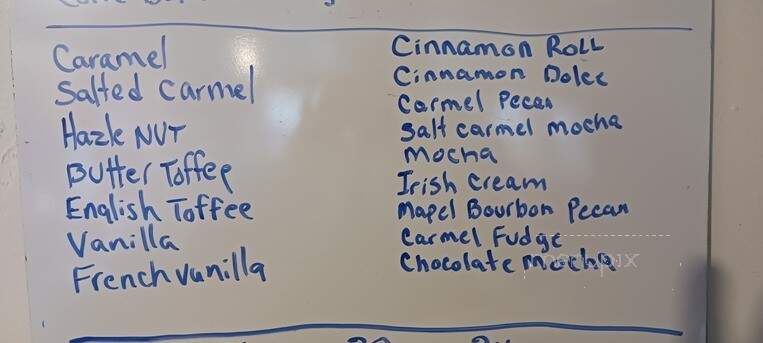 Caramel
Salted Carmel
Hazle NUT
Butter Toffee
English Toffee
Vanilla
French vanilla
Cinnamon Roll
Cinnamon Dolce
Carmel Pecan
Salt carmel mocha
mocha
Irish Cream
Mapel Bourbon Pecan
Carmel Fudge
Chocolate mocha
menupix